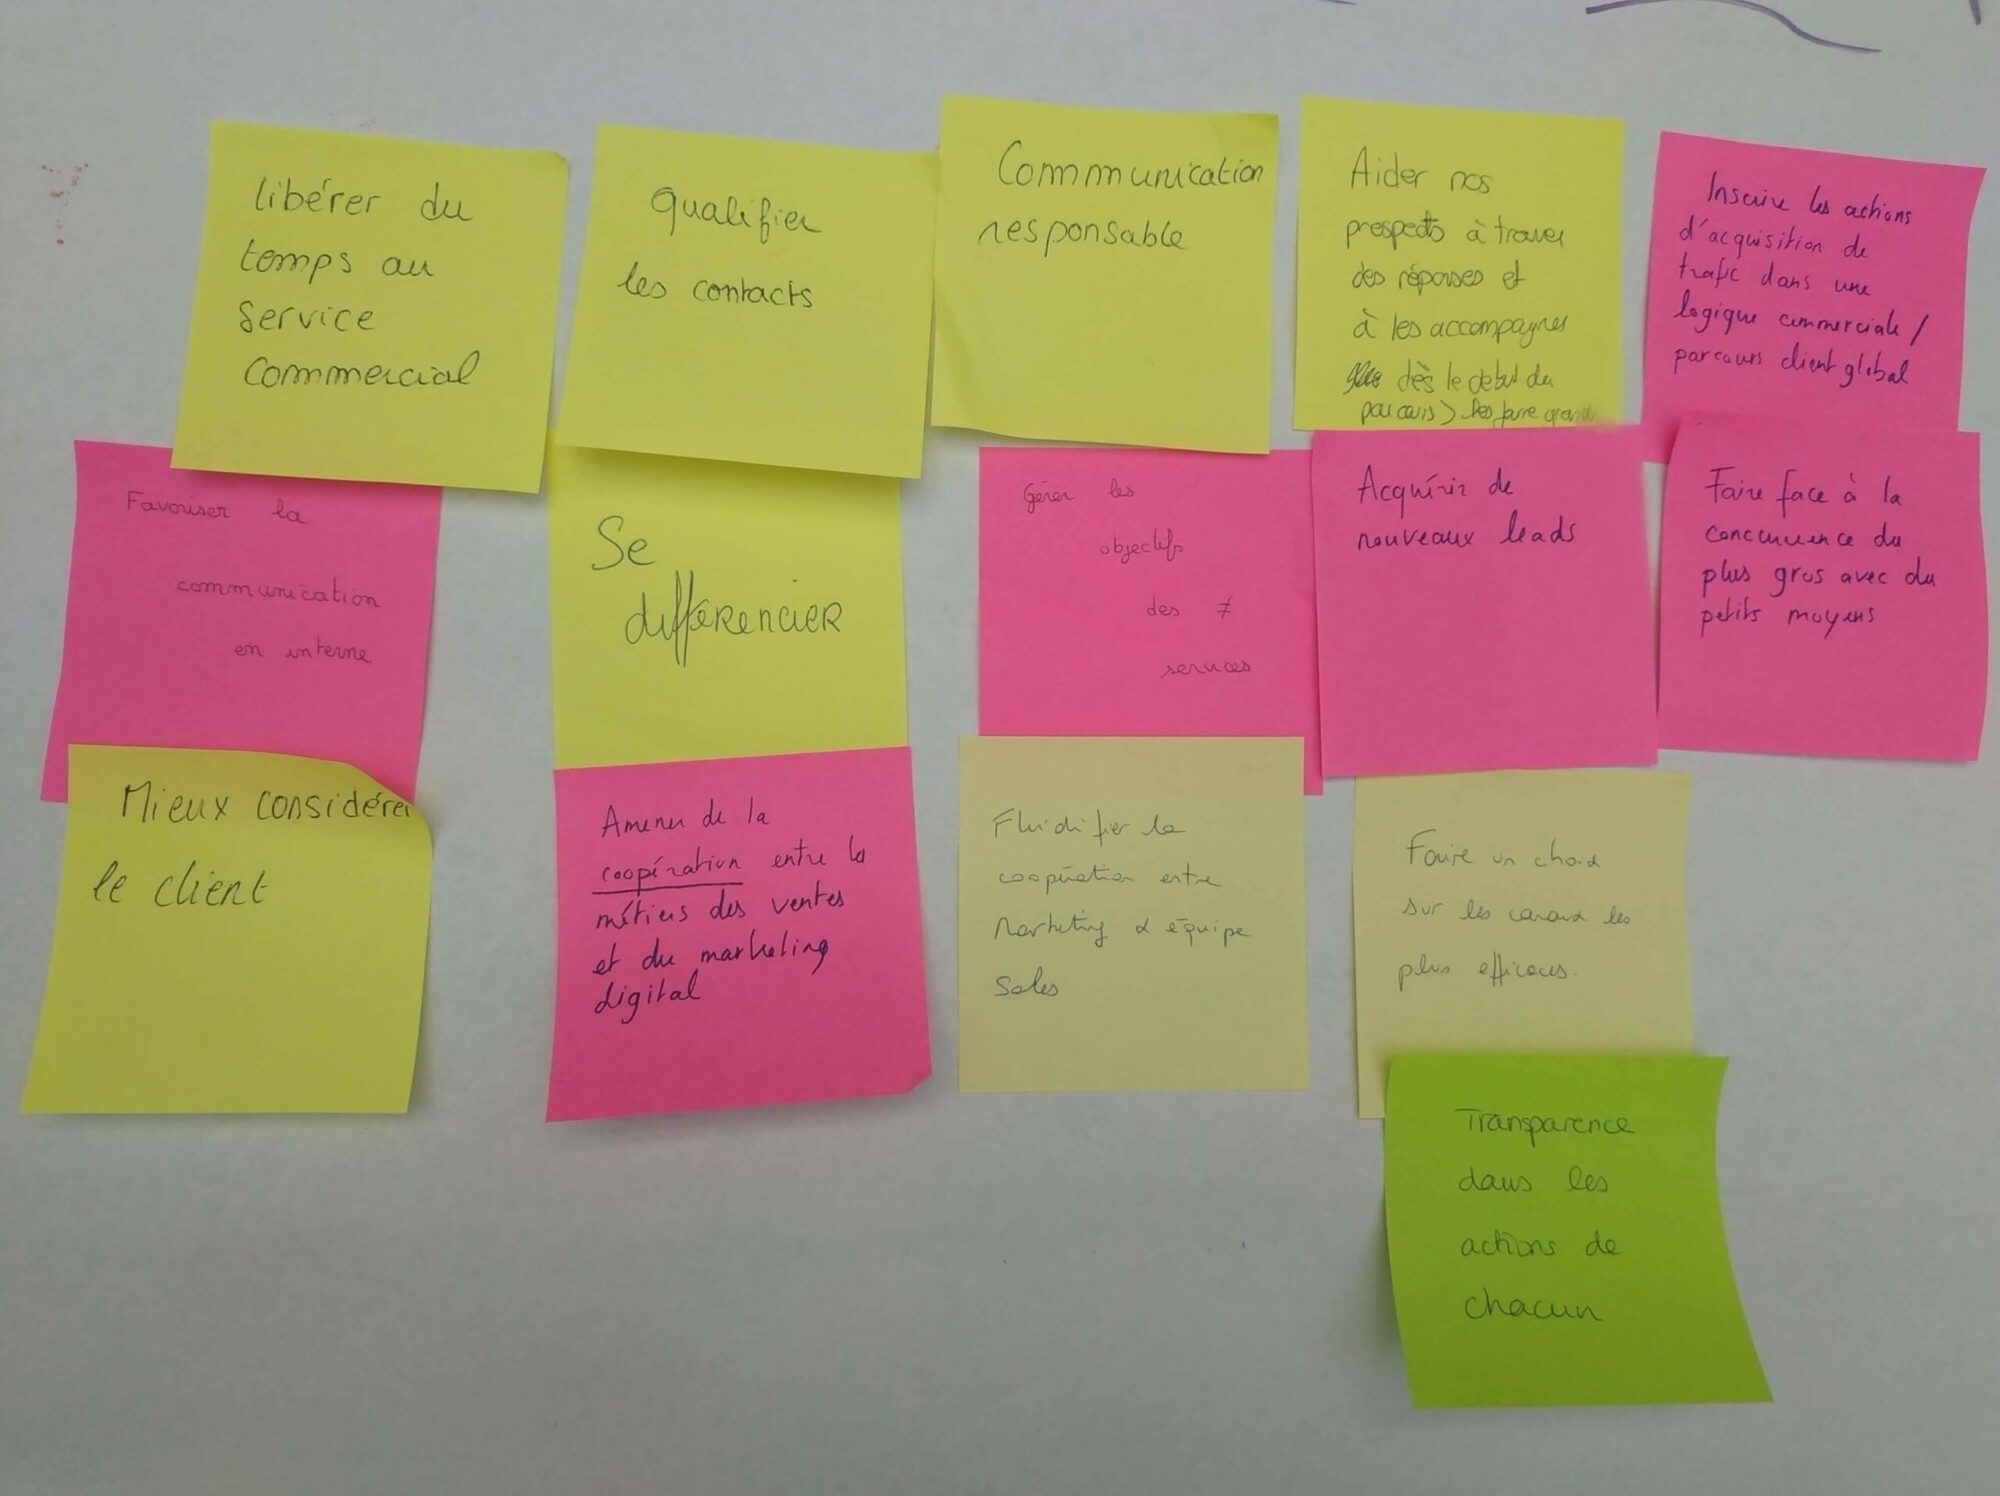 libérer du
temps au
service
commercial
qualifier
les contacts
Communication
responsable
Aider nos
prospects à traver
des réponses et
à les accompagner
dès le debut du
parcours > les faire
Inscrire les actions
d'acquisition de
trafic dans une
logique commerciale /
parcours client global
Favoriser la
communication
en interne
Se
différencier
Gérer les
objectifs
des ≠
services
Acquérir de
nouveaux leads
Faire face à la
concurrence du
plus gros avec du
petits moyens
Mieux considérer
le client
Amener de la
coopération entre les
métiers des ventes
et du marketing
digital
Fluidifier la
coopération entre
Marketing & équipe
Sales
Faire un choix
sur les canaux les
plus efficaces.
Transparence
dans les
actions de
chacun